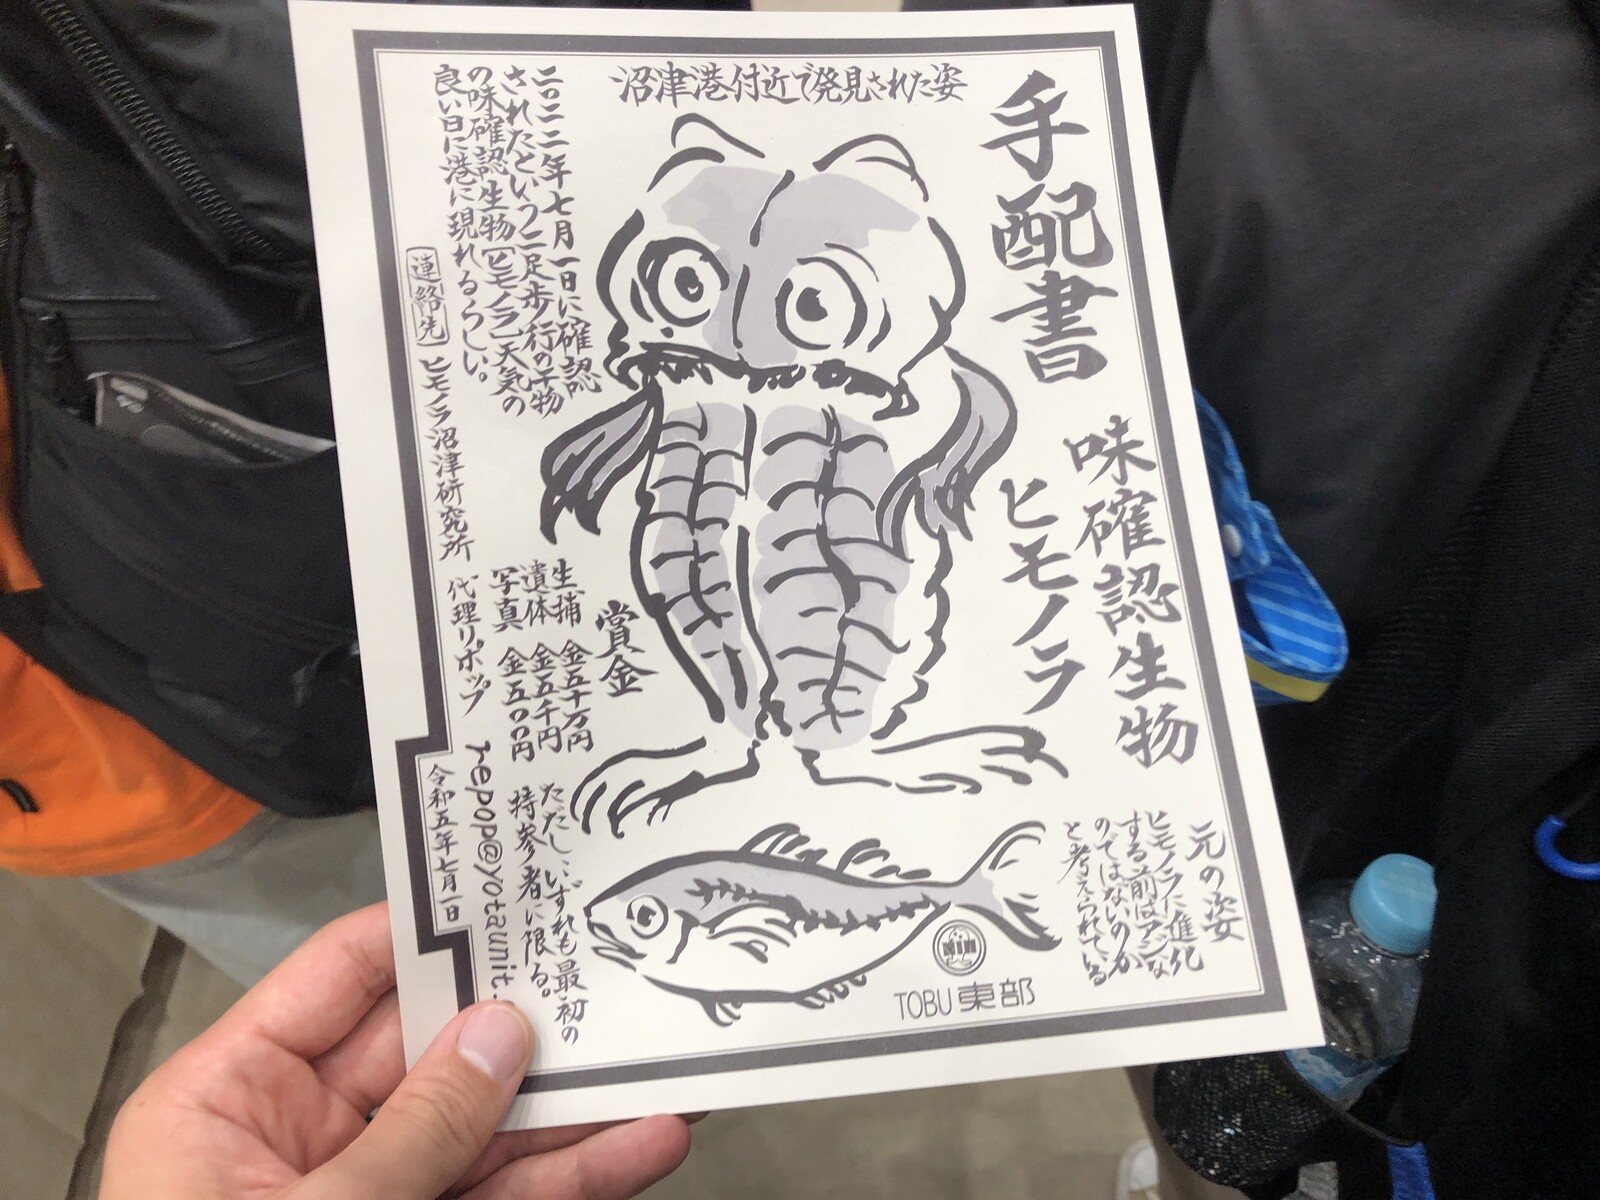 手配書
味確認生物
ヒモノラ
沼津港付近で発見された姿
二〇二二年七月一日に確認
されたという二足歩行の干物
の味確認生物「ヒモノラ」天気の
良い日に港に現れるらしい。
連絡先
ヒモノラ沼津研究所 代理リポップ repop@yotaunit.
賞金
生捕 金五十万円
遺体 金五千円
写真 金五〇〇円
ただし、いずれも最初の
持参者に限る。
令和五年七月一日
元の姿
ヒモノラに進化
する前はアジな
のではないのか
と考えられている
TOBU 東部